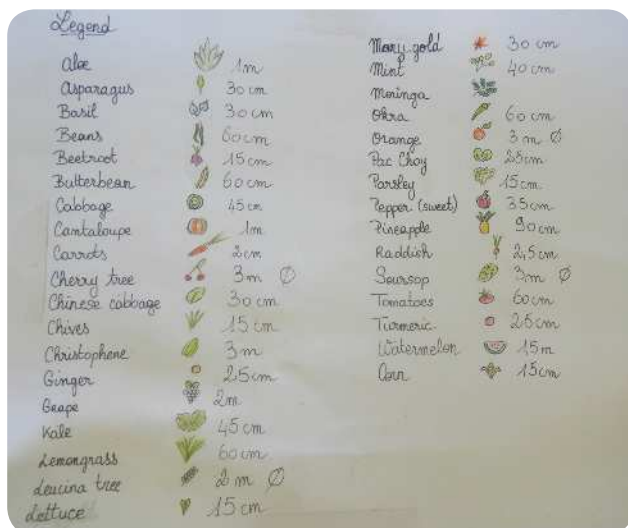 Legend
Aloe 1m
Asparagus 30cm
Basil 30cm
Beans 60cm
Beetroot 15cm
Butterbean 60cm
Cabbage 45cm
Cantaloupe 1m
Carrots 2cm
Cherry tree 3m Ø
Chinese cabbage 30cm
Chives 15cm
Christophene 3m
Ginger 25cm
Grape 2m
Kale 45cm
Lemongrass 60cm
Leucina tree 2m Ø
Lettuce 15cm
Mary gold 30cm
Mint 40cm
Moringa
Okra 60cm
Orange 3m Ø
Pac Choy 25cm
Parsley 15cm
Pepper (sweet) 35cm
Pineapple 90cm
Raddish 2,5cm
Soursop 3m Ø
Tomatoes 60cm
Turmeric 25cm
Watermelon 15m
Corn 15cm